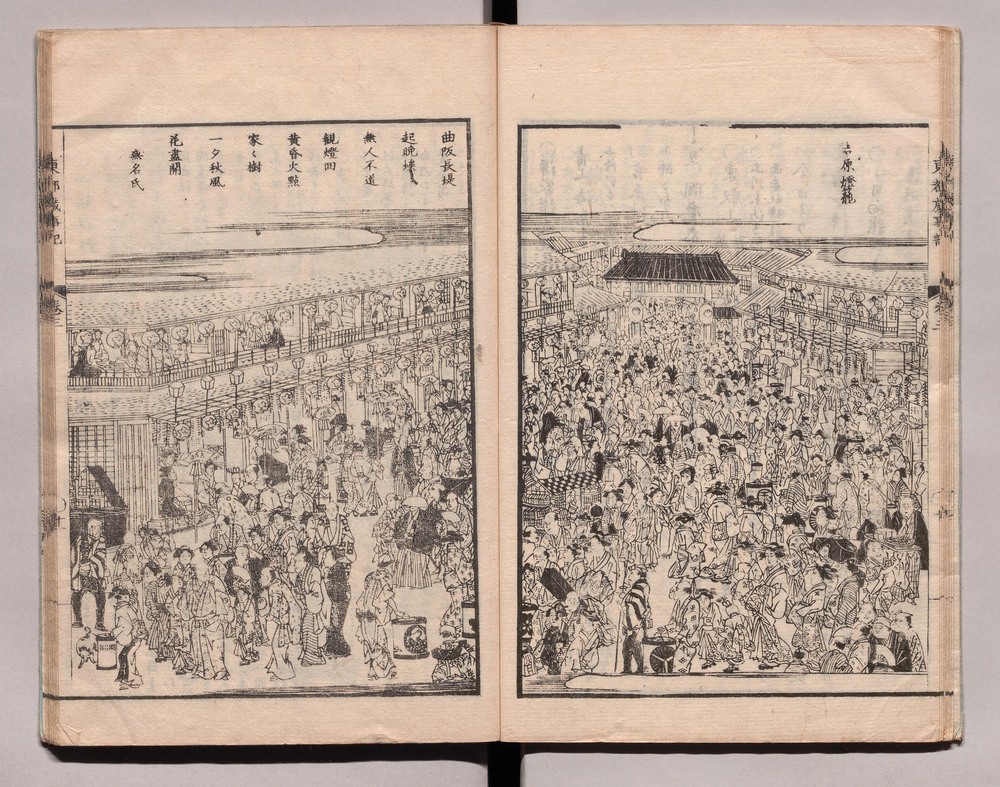 東都歳事記
吉原燈籠
曲阪長堤
起晩埃
無人不道
観燈回
黄昏火點
家〻樹
一夕秋風
花盡開
無名氏
東都歳事記